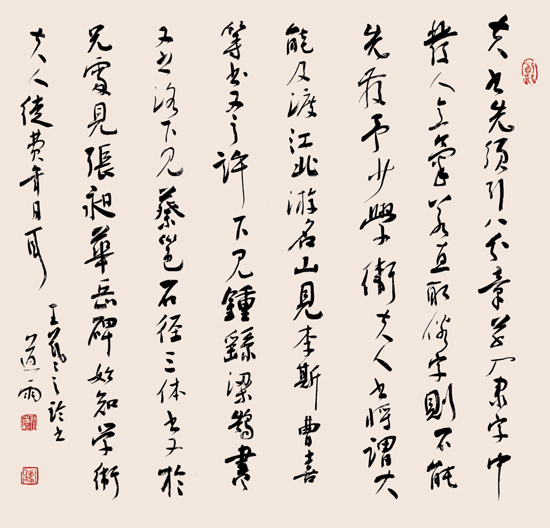 夫书先須引八分章草入隶字中
發人意氣若直取俗字則不能
先發予少學衛夫人书將謂大
能及渡江北游名山見李斯曹喜
等书又之许下见鍾繇梁鵠書
又之洛下见蔡邕石径三体书又於
兄處見張昶華岳碑始知学衛
夫人徒費年月耳
王羲之論书
道雨